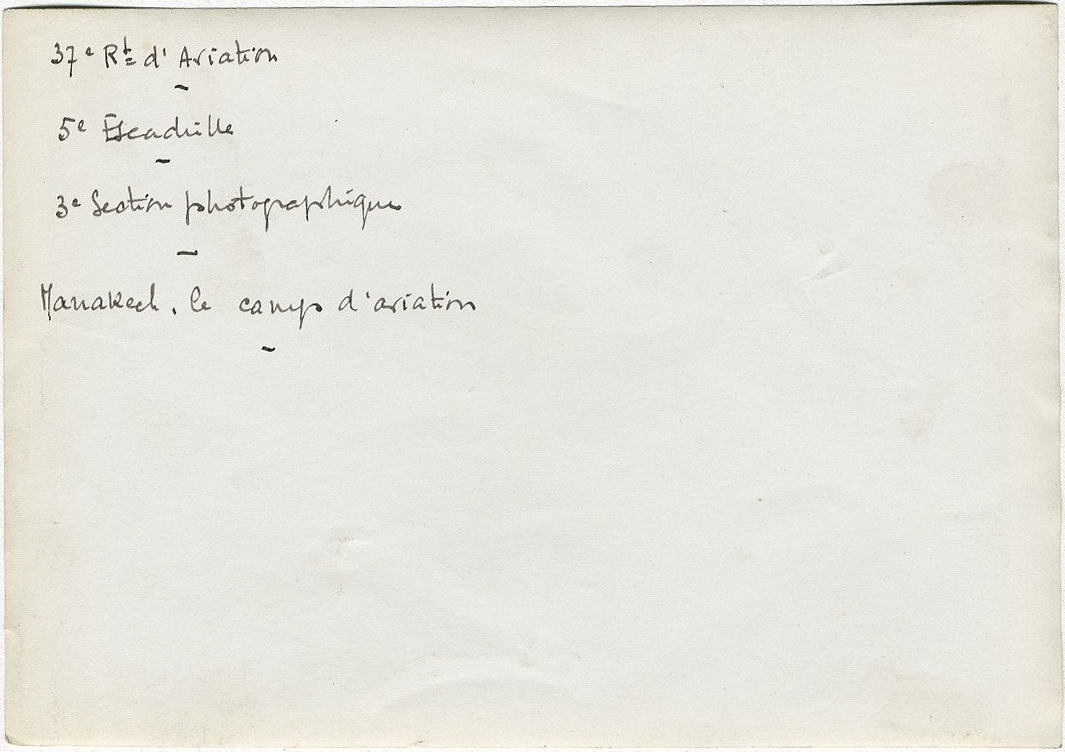 37e Rt d'Aviation
5e Escadrille
3e Section photographique
Marrakech. le camp d'aviation